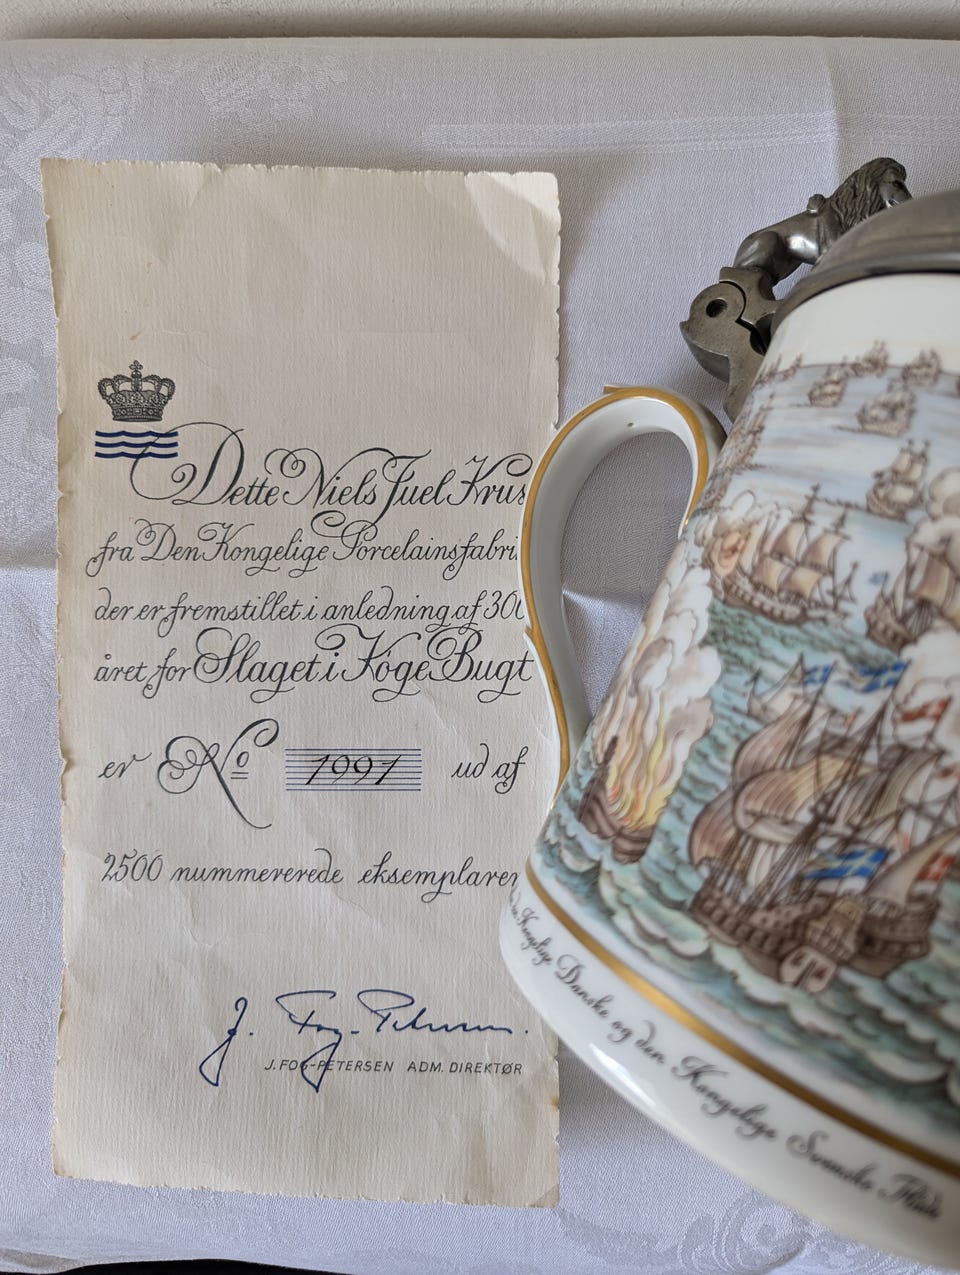 Dette Niels Juel Krus
fra Den Kongelige Porcelainsfabri
der er fremstillet i anledning af 300
året for Slaget i Køge Bugt
er No 1991 ud af
2500 nummererede eksemplarer
J. Fog-Petersen.
J. FOG-PETERSEN ADM. DIREKTØR
Kongelige Danske og den Kongelige Svenske Flåde